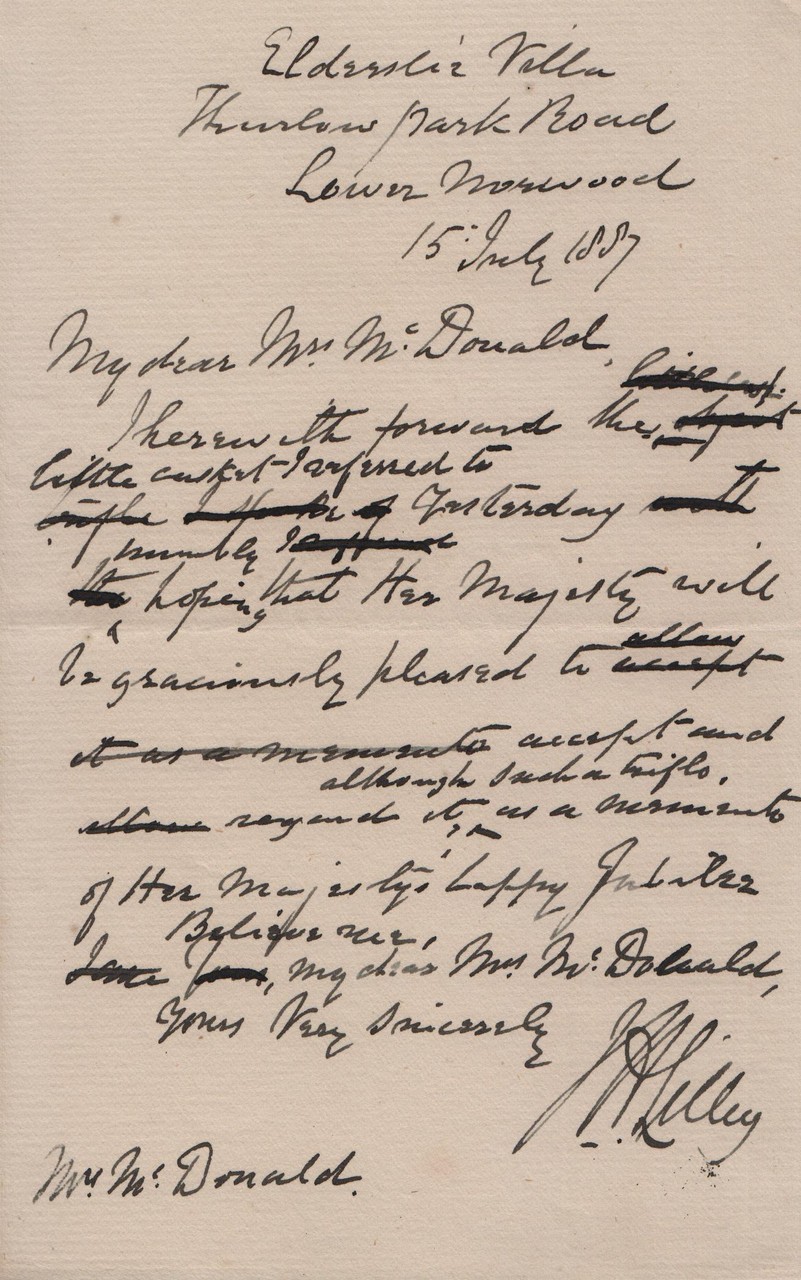 Elderslie Villa
Thurlow Park Road
Lower Norwood
15 July 1887
My dear Mrs McDonald,
I herewith forward the
little casket I referred to
Yesterday with
humbly I
the hoping that Her Majesty will
allow
be graciously pleased to accept
it as a memento accept and
although such a trifle,
allow regard it, as a memento
of Her Majesty's happy Jubilee
Believe me,
my dear Mrs McDonald,
Yours Very Sincerely
Mrs McDonald.